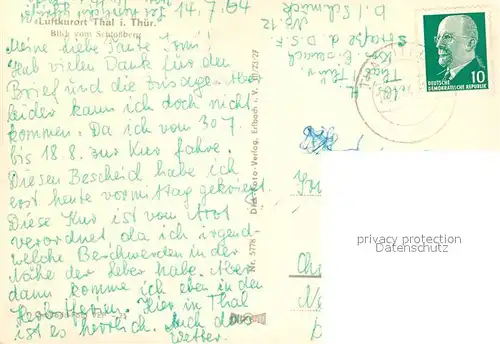 14.7.64
Luftkurort Thal i. Thür.
Blick vom Schloßberg
Meine liebe Tante Irmi!
Hab vielen Dank für den
Brief und die Zusage. Aber
leider kann ich doch nicht
kommen. Da ich vom 30 7.
bis 18.8. zur Kur fahre.
Diesen Bescheid habe ich
erst heute vormittag gekriegt.
Diese Kur ist vom Arzt
verordnet da ich irgend
welche Beschwerden in der
Nähe der Leber habe. Aber
dann komme ich eben in den
Herbstferien. Hier in Thal
ist es herrlich. Auch das
Wetter.
b/ Schmück
No. 12
Straße d. D.S.F.
Krs. Eisenach
Thür.
Thal
Dick-Foto-Verlag, Erlbach i. V.
Nr. 5778
DEUTSCHE
DEMOKRATISCHE REPUBLIK
10
privacy protection
Datenschutz